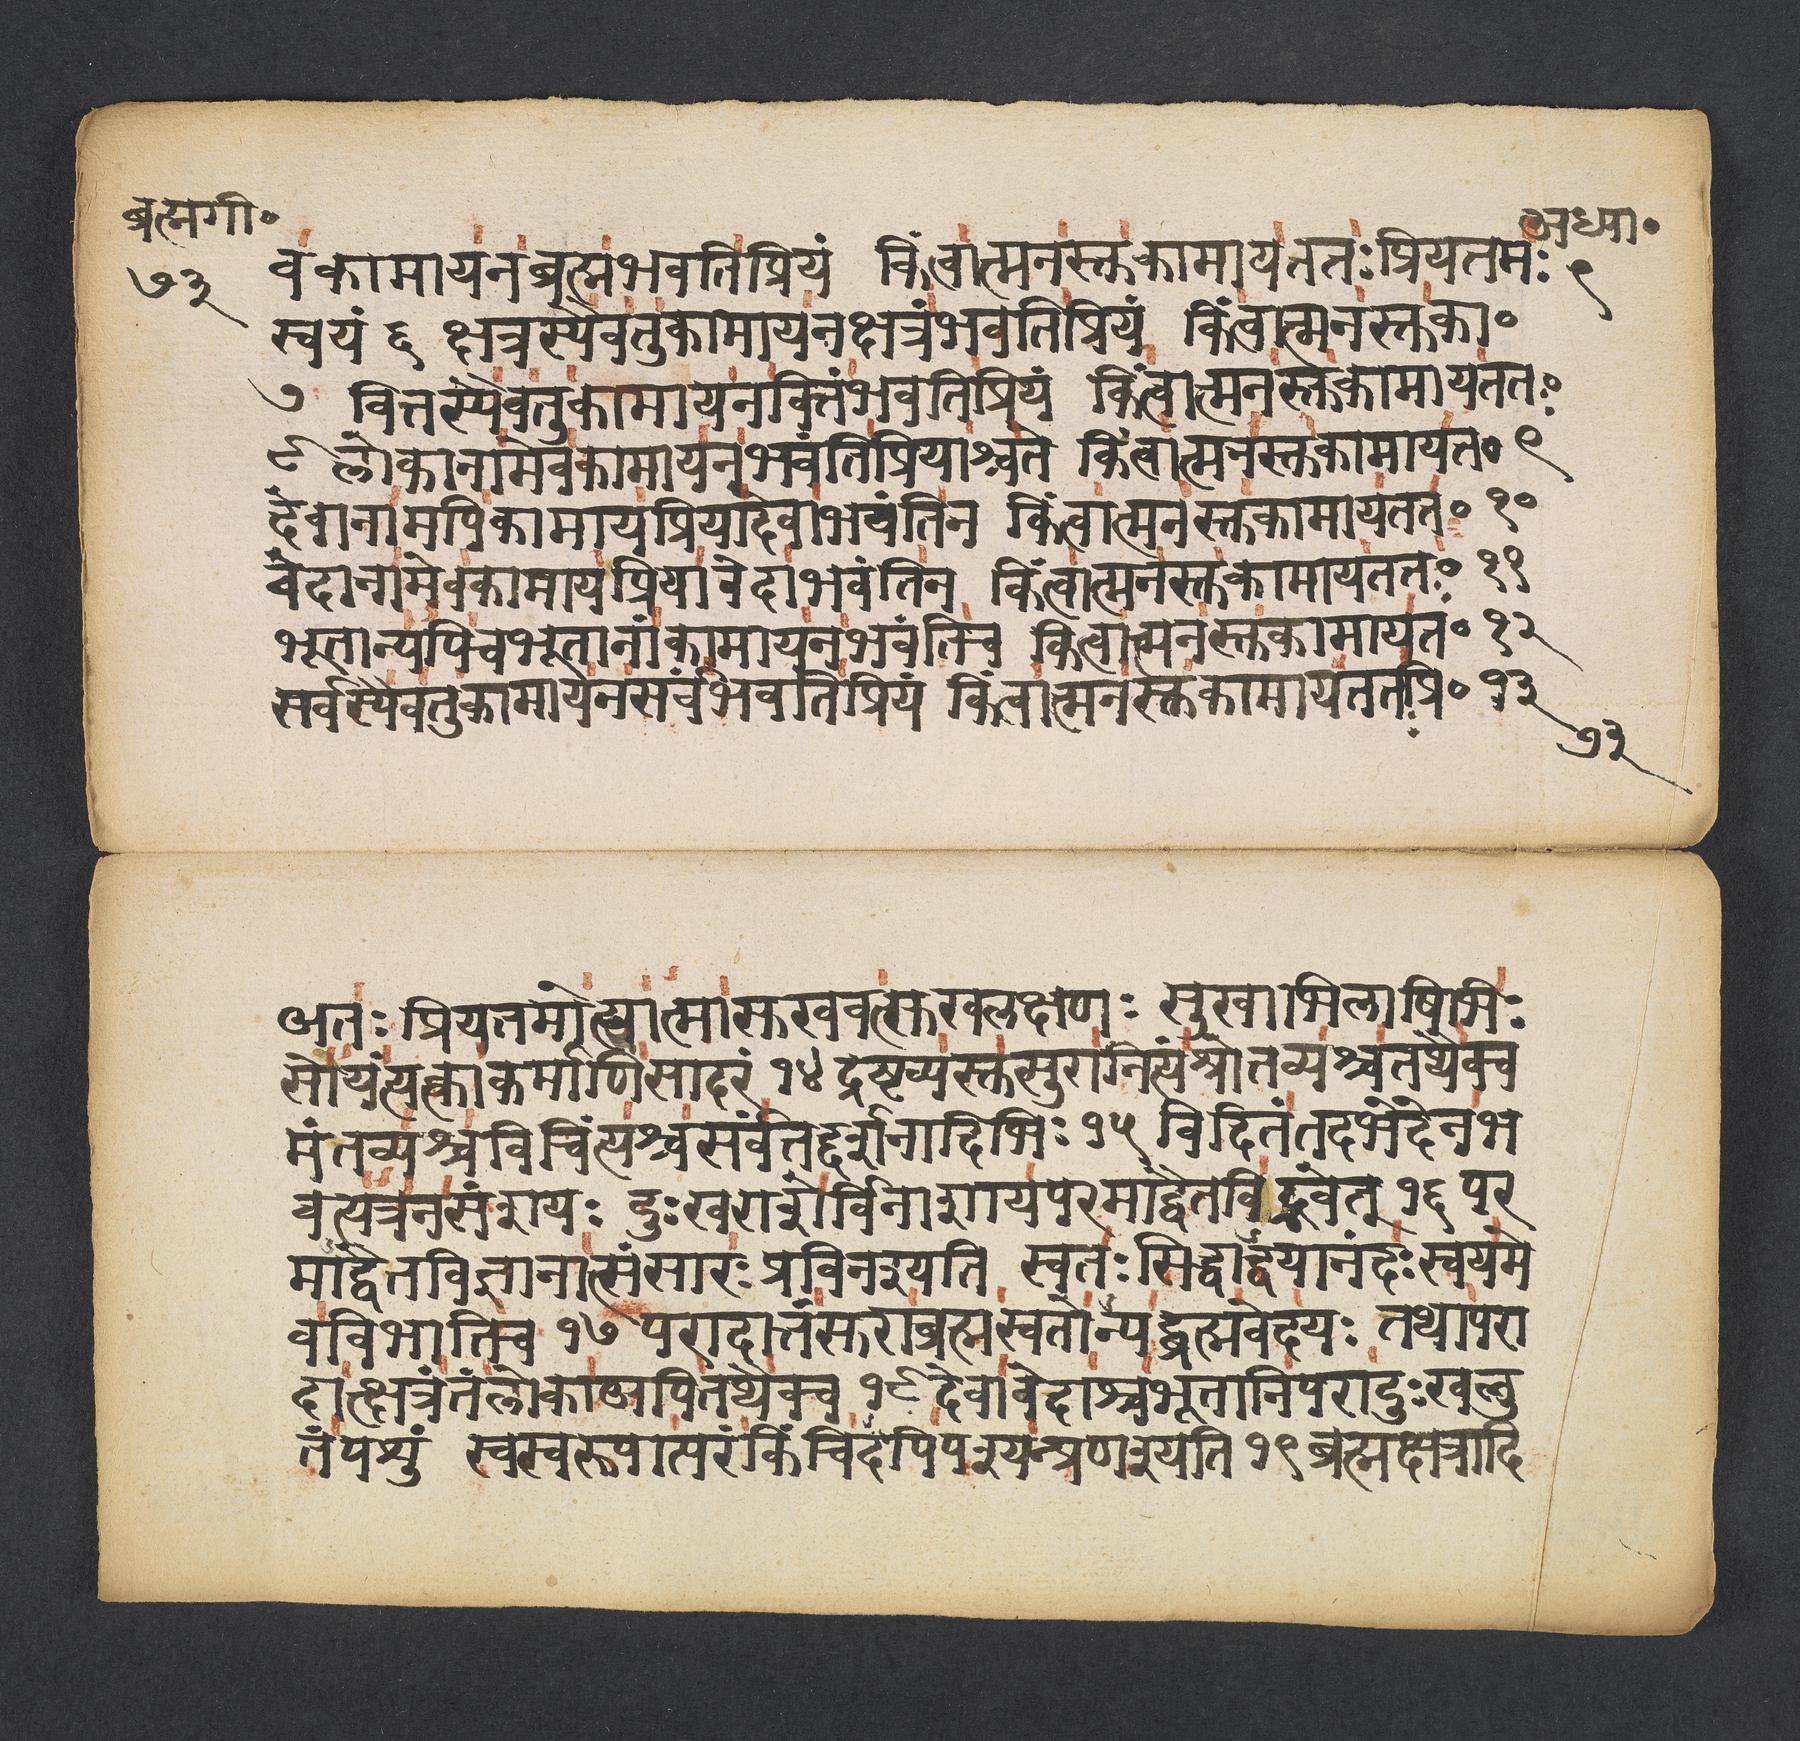 ब्रह्मगी॰
अध्या॰
७३
९
वकामायनब्रह्मभवतिप्रियं किंत्वात्मनस्तुकामायततःप्रियतमः
स्वयं ६ क्षत्रस्यैवतुकामायनक्षत्रंभवतिप्रियं किंत्वात्मनस्तुका॰
७ वित्तस्यैवतुकामायनवित्तंभवतिप्रियं किंत्वात्मनस्तुकामायततः॰
८ लोकानामेवकामायनभवंतिप्रियाश्चते किंत्वात्मनस्तुकामायत॰ ९
देवानामपिकामायप्रियादेवाभवंतिन किंत्वात्मनस्तुकामायतत॰ १०
वेदानामेवकामायप्रियावेदाभवंतिन किंत्वात्मनस्तुकामायततः॰ ११
भूतान्यपिचभूतानांकामायनभवंतिच किंत्वात्मनस्तुकामायत॰ १२
सर्वस्यैवतुकामायनसर्वंभवतिप्रियं किंत्वात्मनस्तुकामायततःप्रि॰ १३
७३
अतः प्रियतमोह्यात्मासुखवत्सुखलक्षणः सुखाभिलाषिभिः
सोयंत्यत्काकर्माणिसादरं १४ द्रष्टव्यस्तुसुरानित्यंश्रोतव्यश्चतथैवच
मंतव्यश्चविचिंत्यश्चसर्वंतद्दर्शनादिभिः १५ विदितंतदभेदेनभ
वत्यत्रनसंशयः दुःखराशेर्विनाशायपरमाद्वैतविद्भवेत् १६ पर
माद्वैतविज्ञानात्संसारः प्रविनश्यति स्वतःसिद्धाद्वयानंदःस्वयमे
वविभातिच १७ परादात्तंसुराब्रह्मस्वतोन्यद्ब्रह्मवेदयः तथापरा
दात्क्षत्रंतंलोकाअपितथैवच १८ देवावेदाश्चभूतानिपरादुःखलु
तंपशुं स्वस्वरूपात्परंकिंचिदपिपश्यन्प्रणश्यति १९ ब्रह्मक्षत्रादि